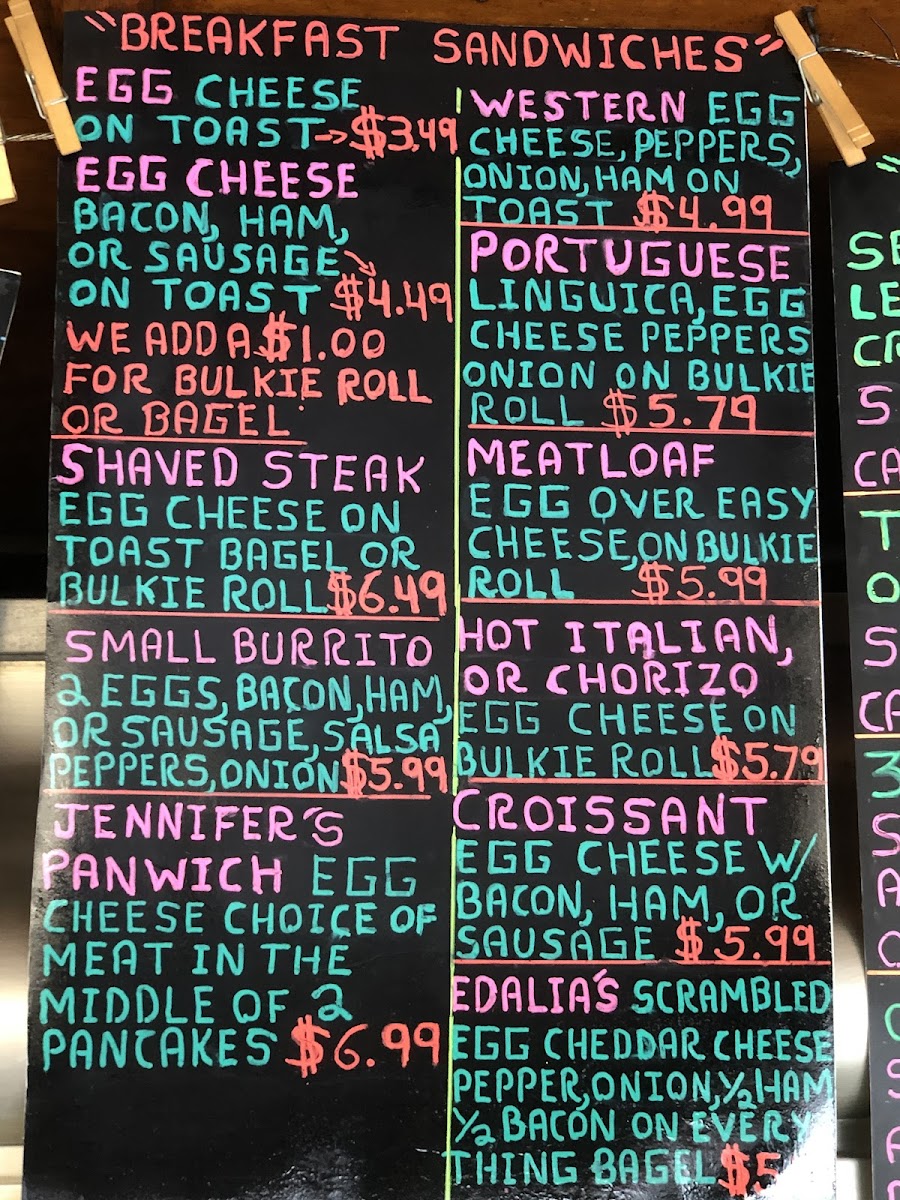 "BREAKFAST SANDWICHES"
EGG CHEESE
ON TOAST→$3.49
EGG CHEESE
BACON, HAM,
OR SAUSAGE→
ON TOAST $4.49
WE ADD A $1.00
FOR BULKIE ROLL
OR BAGEL
SHAVED STEAK
EGG CHEESE ON
TOAST BAGEL OR
BULKIE ROLL $6.49
SMALL BURRITO
2 EGGS, BACON, HAM,
OR SAUSAGE, SALSA
PEPPERS, ONION $5.99
JENNIFER'S
PANWICH EGG
CHEESE CHOICE OF
MEAT IN THE
MIDDLE OF 2
PANCAKES $6.99
WESTERN EGG
CHEESE, PEPPERS,
ONION, HAM ON
TOAST $4.99
PORTUGUESE
LINGUICA, EGG
CHEESE PEPPERS
ONION ON BULKIE
ROLL $5.79
MEATLOAF
EGG OVER EASY
CHEESE, ON BULKIE
ROLL $5.99
HOT ITALIAN,
OR CHORIZO
EGG CHEESE ON
BULKIE ROLL $5.79
CROISSANT
EGG CHEESE W/
BACON, HAM, OR
SAUSAGE $5.99
EDALIA'S SCRAMBLED
EGG CHEDDAR CHEESE
PEPPER, ONION, 1/2 HAM
1/2 BACON ON EVERY
THING BAGEL $5